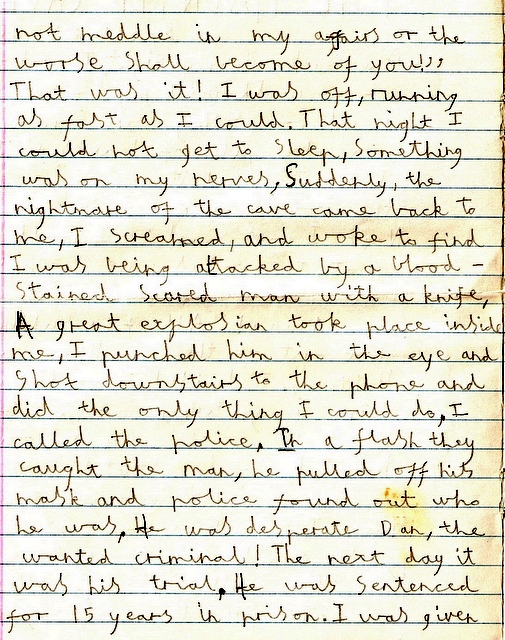 not meddle in my affairs or the
worse shall become of you!"
That was it! I was off, running
as fast as I could. That night I
could not get to sleep, Something
was on my nerves, Suddenly, the
nightmare of the cave came back to
me, I screamed, and woke to find
I was being attacked by a blood-
stained scared man with a knife,
A great explosian took place inside
me, I punched him in the eye and
shot downstairs to the phone and
did the only thing I could do, I
called the police. In a flash they
caught the man, he pulled off his
mask and police found out who
he was. He was desperate Dan, the
wanted criminal! The next day it
was his trial. He was sentenced
for 15 years in prison. I was given